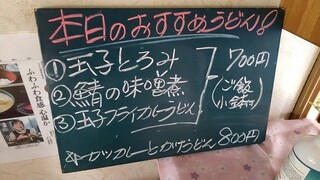 本日のおすすめうどん8
①玉子とろみ
②鯖の味噌煮
③玉子フライカレーうどん
700円
(ご飯
小鉢付)
牛カツカレーとかけうどん 800円
ふわふわ食感